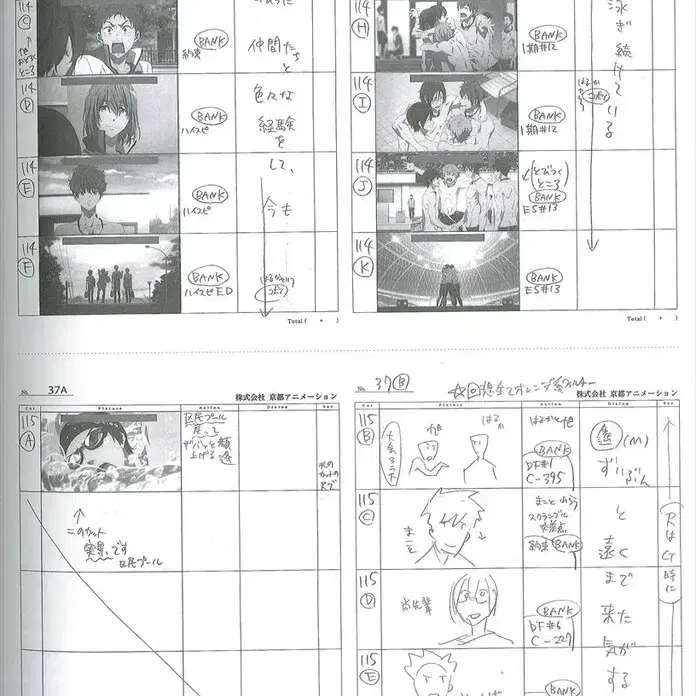 114
C
BANK
約束
仲間たちと
114
D
BANK
ハイスピ
色々な
経験を
して、
114
E
BANK
ハイスピ
今も
114
F
BANK
ハイスピED
Total ( + )
H
BANK
1期#12
泳ぎ続けている
114
I
BANK
1期#12
114
J
(とびつく
ところ)
BANK
ES#13
114
K
BANK
ES#13
Total ( + )
No. 37A
株式会社 京都アニメーション
Cut Picture Action Dialog Sec
115
A
区民プール
このカット
実景です
区民プール
No. 37 B
株式会社 京都アニメーション
Cut Picture Action Dialog Sec
115
B
旭
はるか
はるかと旭
BANK
DF#1
C-395
遙(M)
ずいぶん
115
C
まこと
スクランブル
交差点
約束 BANK
と
遠く
115
D
尚先輩
BANK
DF#6
C-227
まで
来た
115
E
BANK
気が
する